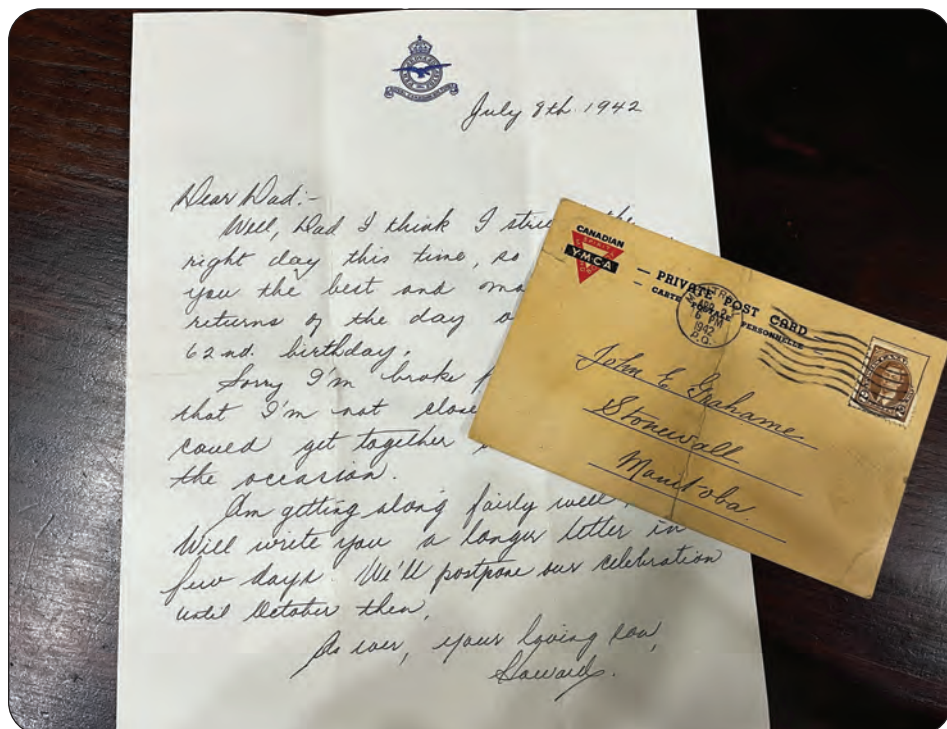 July 8th. 1942
Dear Dad:-
Well, Dad I think I
right day this time, so
you the best and
returns of the day
62nd. birthday.
Sorry I'm broke
that I'm not close
could get together
the occasion.
Am getting along fairly well
Will write you a longer letter in
few days. We'll postpone our celebration
until October then.
As ever, your loving son,
Howard.
CANADIAN
YMCA
— PRIVATE POST CARD
— CARTE POSTALE PERSONNELLE
6 PM
1942
P.Q.
John E Grahame
Stonewall
Manitoba.